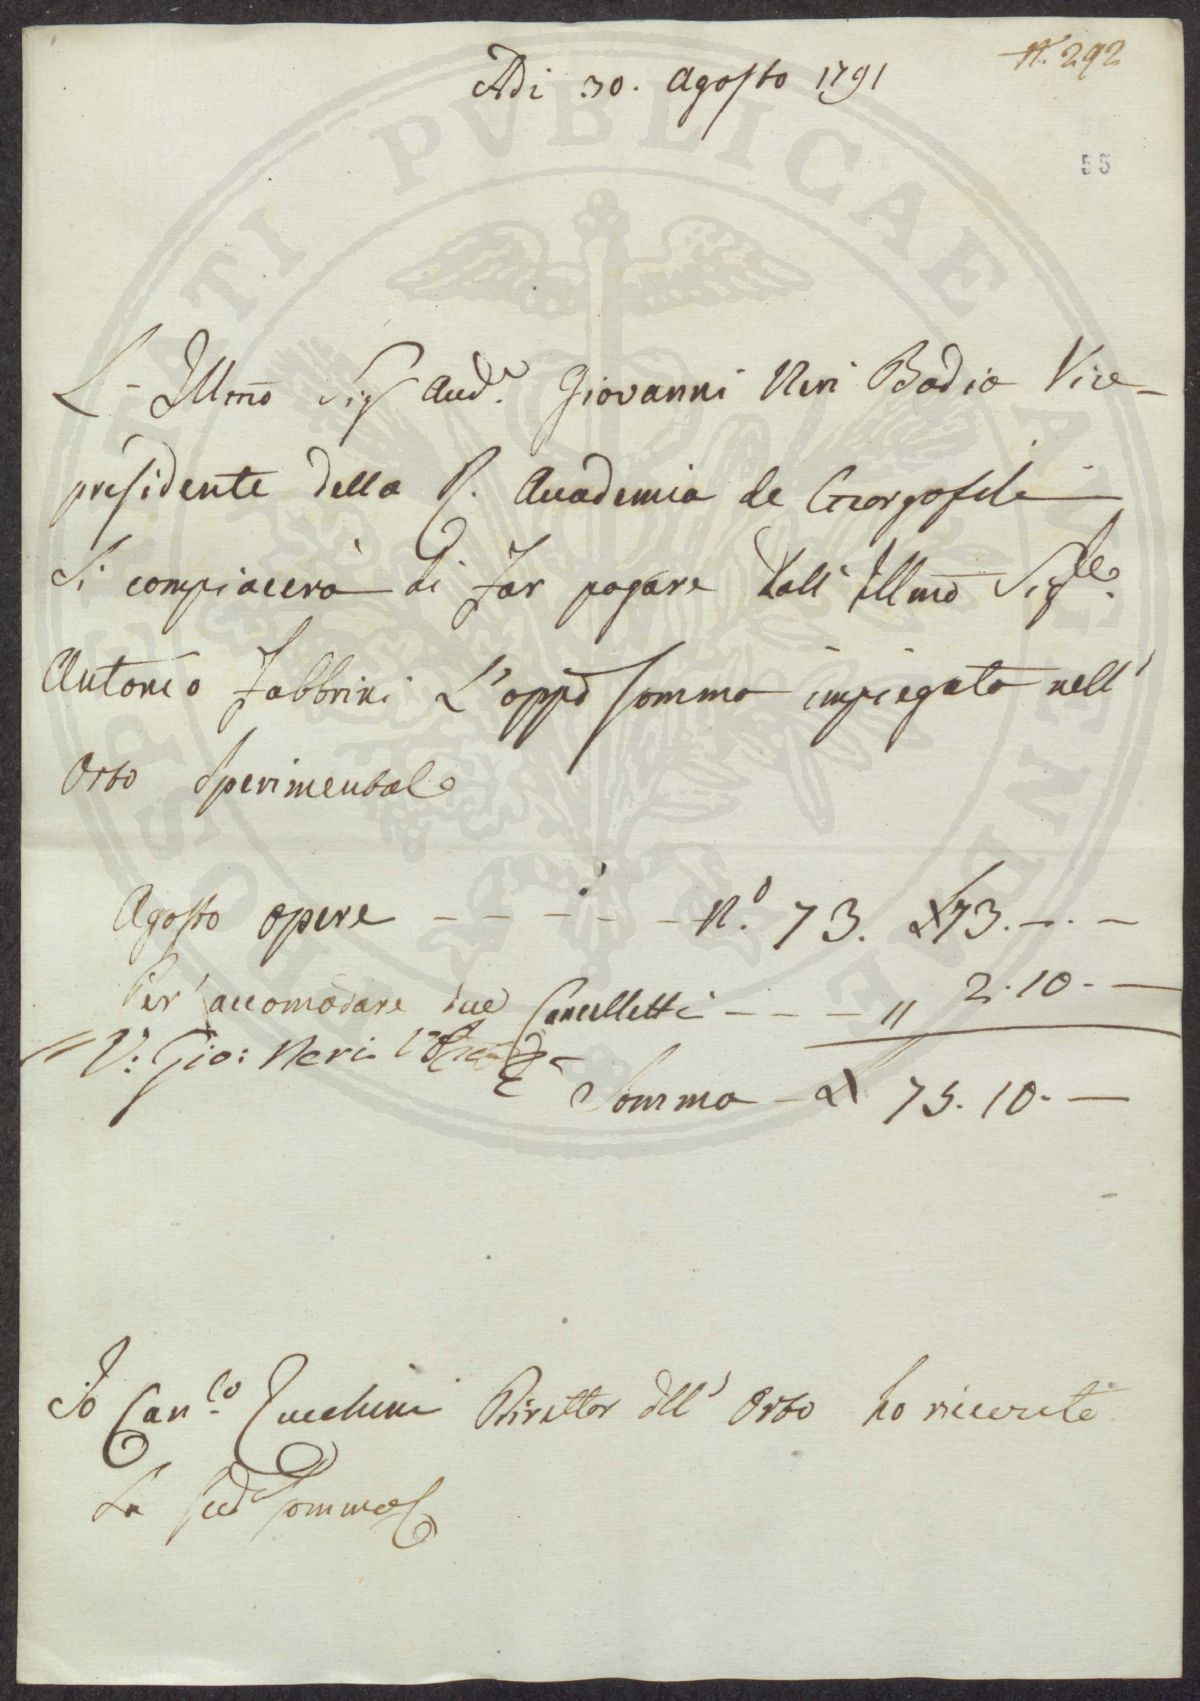 N. 292
Adi 30. Agosto 1791
55
L' Illmo Sigr Audre. Giovanni Neri Badia Vice-
presidente della R. Accademia de Georgofili
Si compiacerà di far pagare dall' Illmo Sigle.
Antonio Fabbrini L'oppa somma impiegata nell'
Orto Sperimentale
Agosto opere - - - - - - N.o 73. £ 73. - . -
Per accomodare due Cancelletti - - - " 2. 10. -
V: Gio: Neri
Somma - £ 75. 10. -
Io Canco. Zucchini Direttor dell' Orto ho ricevuto
La sudda somma
PVBLICAE